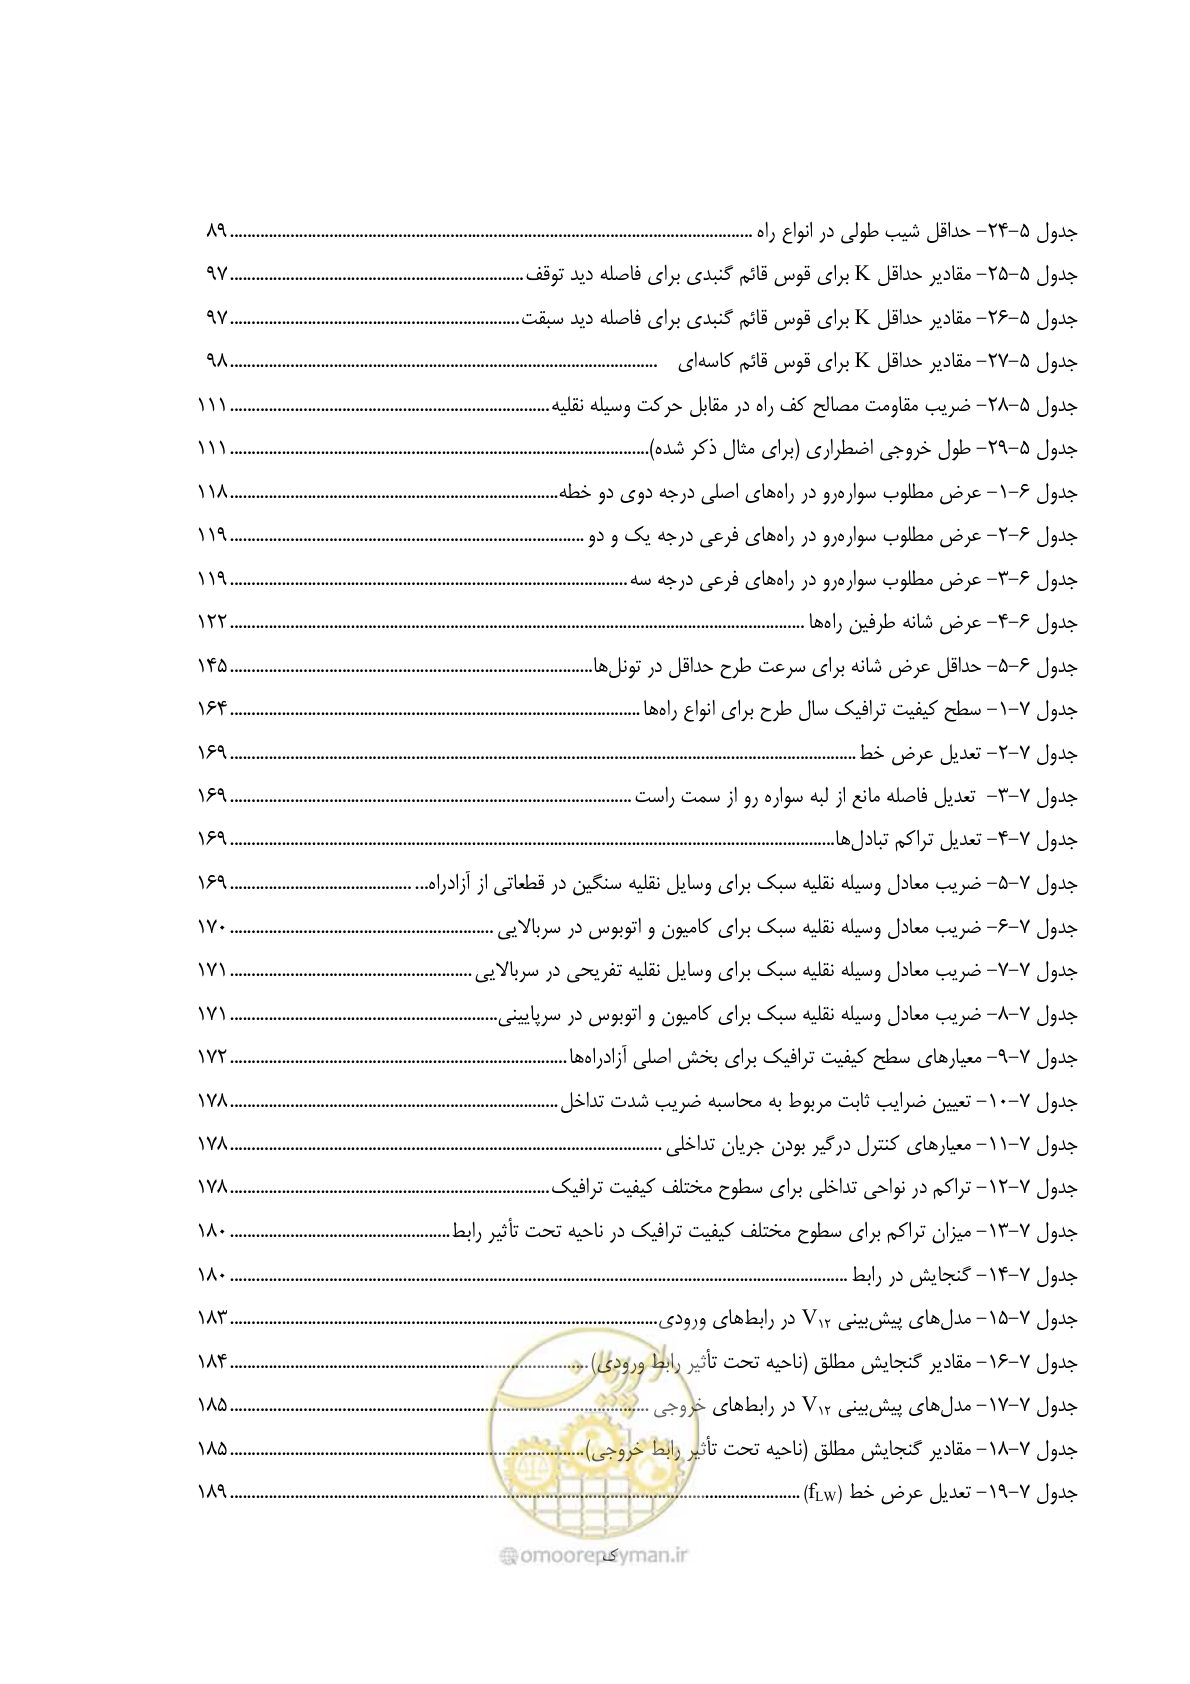 جدول ۵-۲۴- حداقل شیب طولی در انواع راه ........ ۸۹
جدول ۵-۲۵- مقادیر حداقل K برای قوس قائم گنبدی برای فاصله دید توقف ........ ۹۷
جدول ۵-۲۶- مقادیر حداقل K برای قوس قائم گنبدی برای فاصله دید سبقت ........ ۹۷
جدول ۵-۲۷- مقادیر حداقل K برای قوس قائم کاسه‌ای ........ ۹۸
جدول ۵-۲۸- ضریب مقاومت مصالح کف راه در مقابل حرکت وسیله نقلیه ........ ۱۱۱
جدول ۵-۲۹- طول خروجی اضطراری (برای مثال ذکر شده) ........ ۱۱۱
جدول ۶-۱- عرض مطلوب سواره‌رو در راه‌های اصلی درجه دوی دو خطه ........ ۱۱۸
جدول ۶-۲- عرض مطلوب سواره‌رو در راه‌های فرعی درجه یک و دو ........ ۱۱۹
جدول ۶-۳- عرض مطلوب سواره‌رو در راه‌های فرعی درجه سه ........ ۱۱۹
جدول ۶-۴- عرض شانه طرفین راه‌ها ........ ۱۲۲
جدول ۶-۵- حداقل عرض شانه برای سرعت طرح حداقل در تونل‌ها ........ ۱۴۵
جدول ۷-۱- سطح کیفیت ترافیک سال طرح برای انواع راه‌ها ........ ۱۶۴
جدول ۷-۲- تعدیل عرض خط ........ ۱۶۹
جدول ۷-۳- تعدیل فاصله مانع از لبه سواره رو از سمت راست ........ ۱۶۹
جدول ۷-۴- تعدیل تراکم تبادل‌ها ........ ۱۶۹
جدول ۷-۵- ضریب معادل وسیله نقلیه سبک برای وسایل نقلیه سنگین در قطعاتی از آزادراه... ........ ۱۶۹
جدول ۷-۶- ضریب معادل وسیله نقلیه سبک برای کامیون و اتوبوس در سربالایی ........ ۱۷۰
جدول ۷-۷- ضریب معادل وسیله نقلیه سبک برای وسایل نقلیه تفریحی در سربالایی ........ ۱۷۱
جدول ۷-۸- ضریب معادل وسیله نقلیه سبک برای کامیون و اتوبوس در سرپایینی ........ ۱۷۱
جدول ۷-۹- معیارهای سطح کیفیت ترافیک برای بخش اصلی آزادراه‌ها ........ ۱۷۲
جدول ۷-۱۰- تعیین ضرایب ثابت مربوط به محاسبه ضریب شدت تداخل ........ ۱۷۸
جدول ۷-۱۱- معیارهای کنترل درگیر بودن جریان تداخلی ........ ۱۷۸
جدول ۷-۱۲- تراکم در نواحی تداخلی برای سطوح مختلف کیفیت ترافیک ........ ۱۷۸
جدول ۷-۱۳- میزان تراکم برای سطوح مختلف کیفیت ترافیک در ناحیه تحت تأثیر رابط ........ ۱۸۰
جدول ۷-۱۴- گنجایش در رابط ........ ۱۸۰
جدول ۷-۱۵- مدل‌های پیش‌بینی V۱۲ در رابط‌های ورودی ........ ۱۸۳
جدول ۷-۱۶- مقادیر گنجایش مطلق (ناحیه تحت تأثیر رابط ورودی) ........ ۱۸۴
جدول ۷-۱۷- مدل‌های پیش‌بینی V۱۲ در رابط‌های خروجی ........ ۱۸۵
جدول ۷-۱۸- مقادیر گنجایش مطلق (ناحیه تحت تأثیر رابط خروجی) ........ ۱۸۵
جدول ۷-۱۹- تعدیل عرض خط (fLW) ........ ۱۸۹
امور پیمان
ک
@omoorepeyman.ir